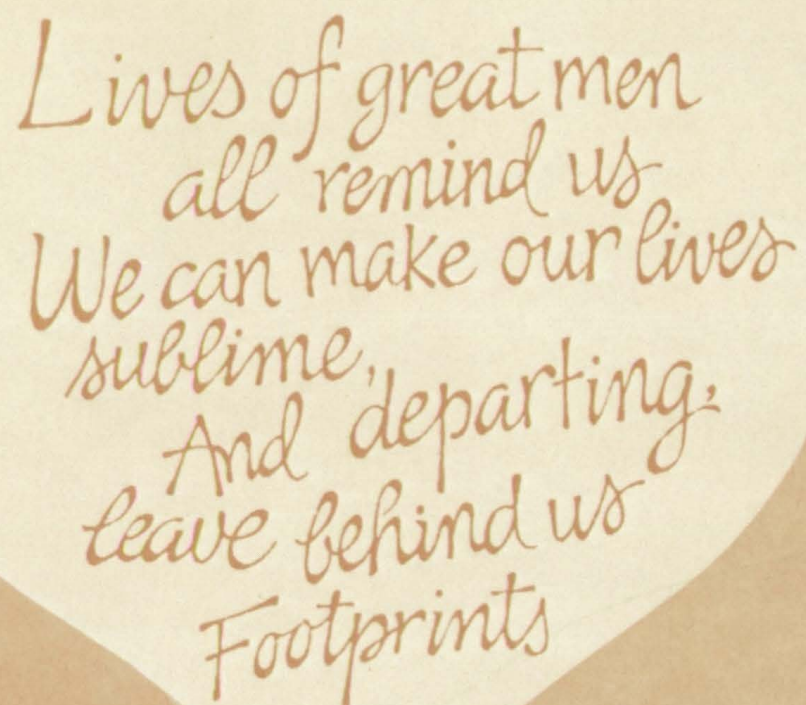 Lives of great men
all remind us
We can make our lives
sublime,
And departing,
leave behind us
Footprints